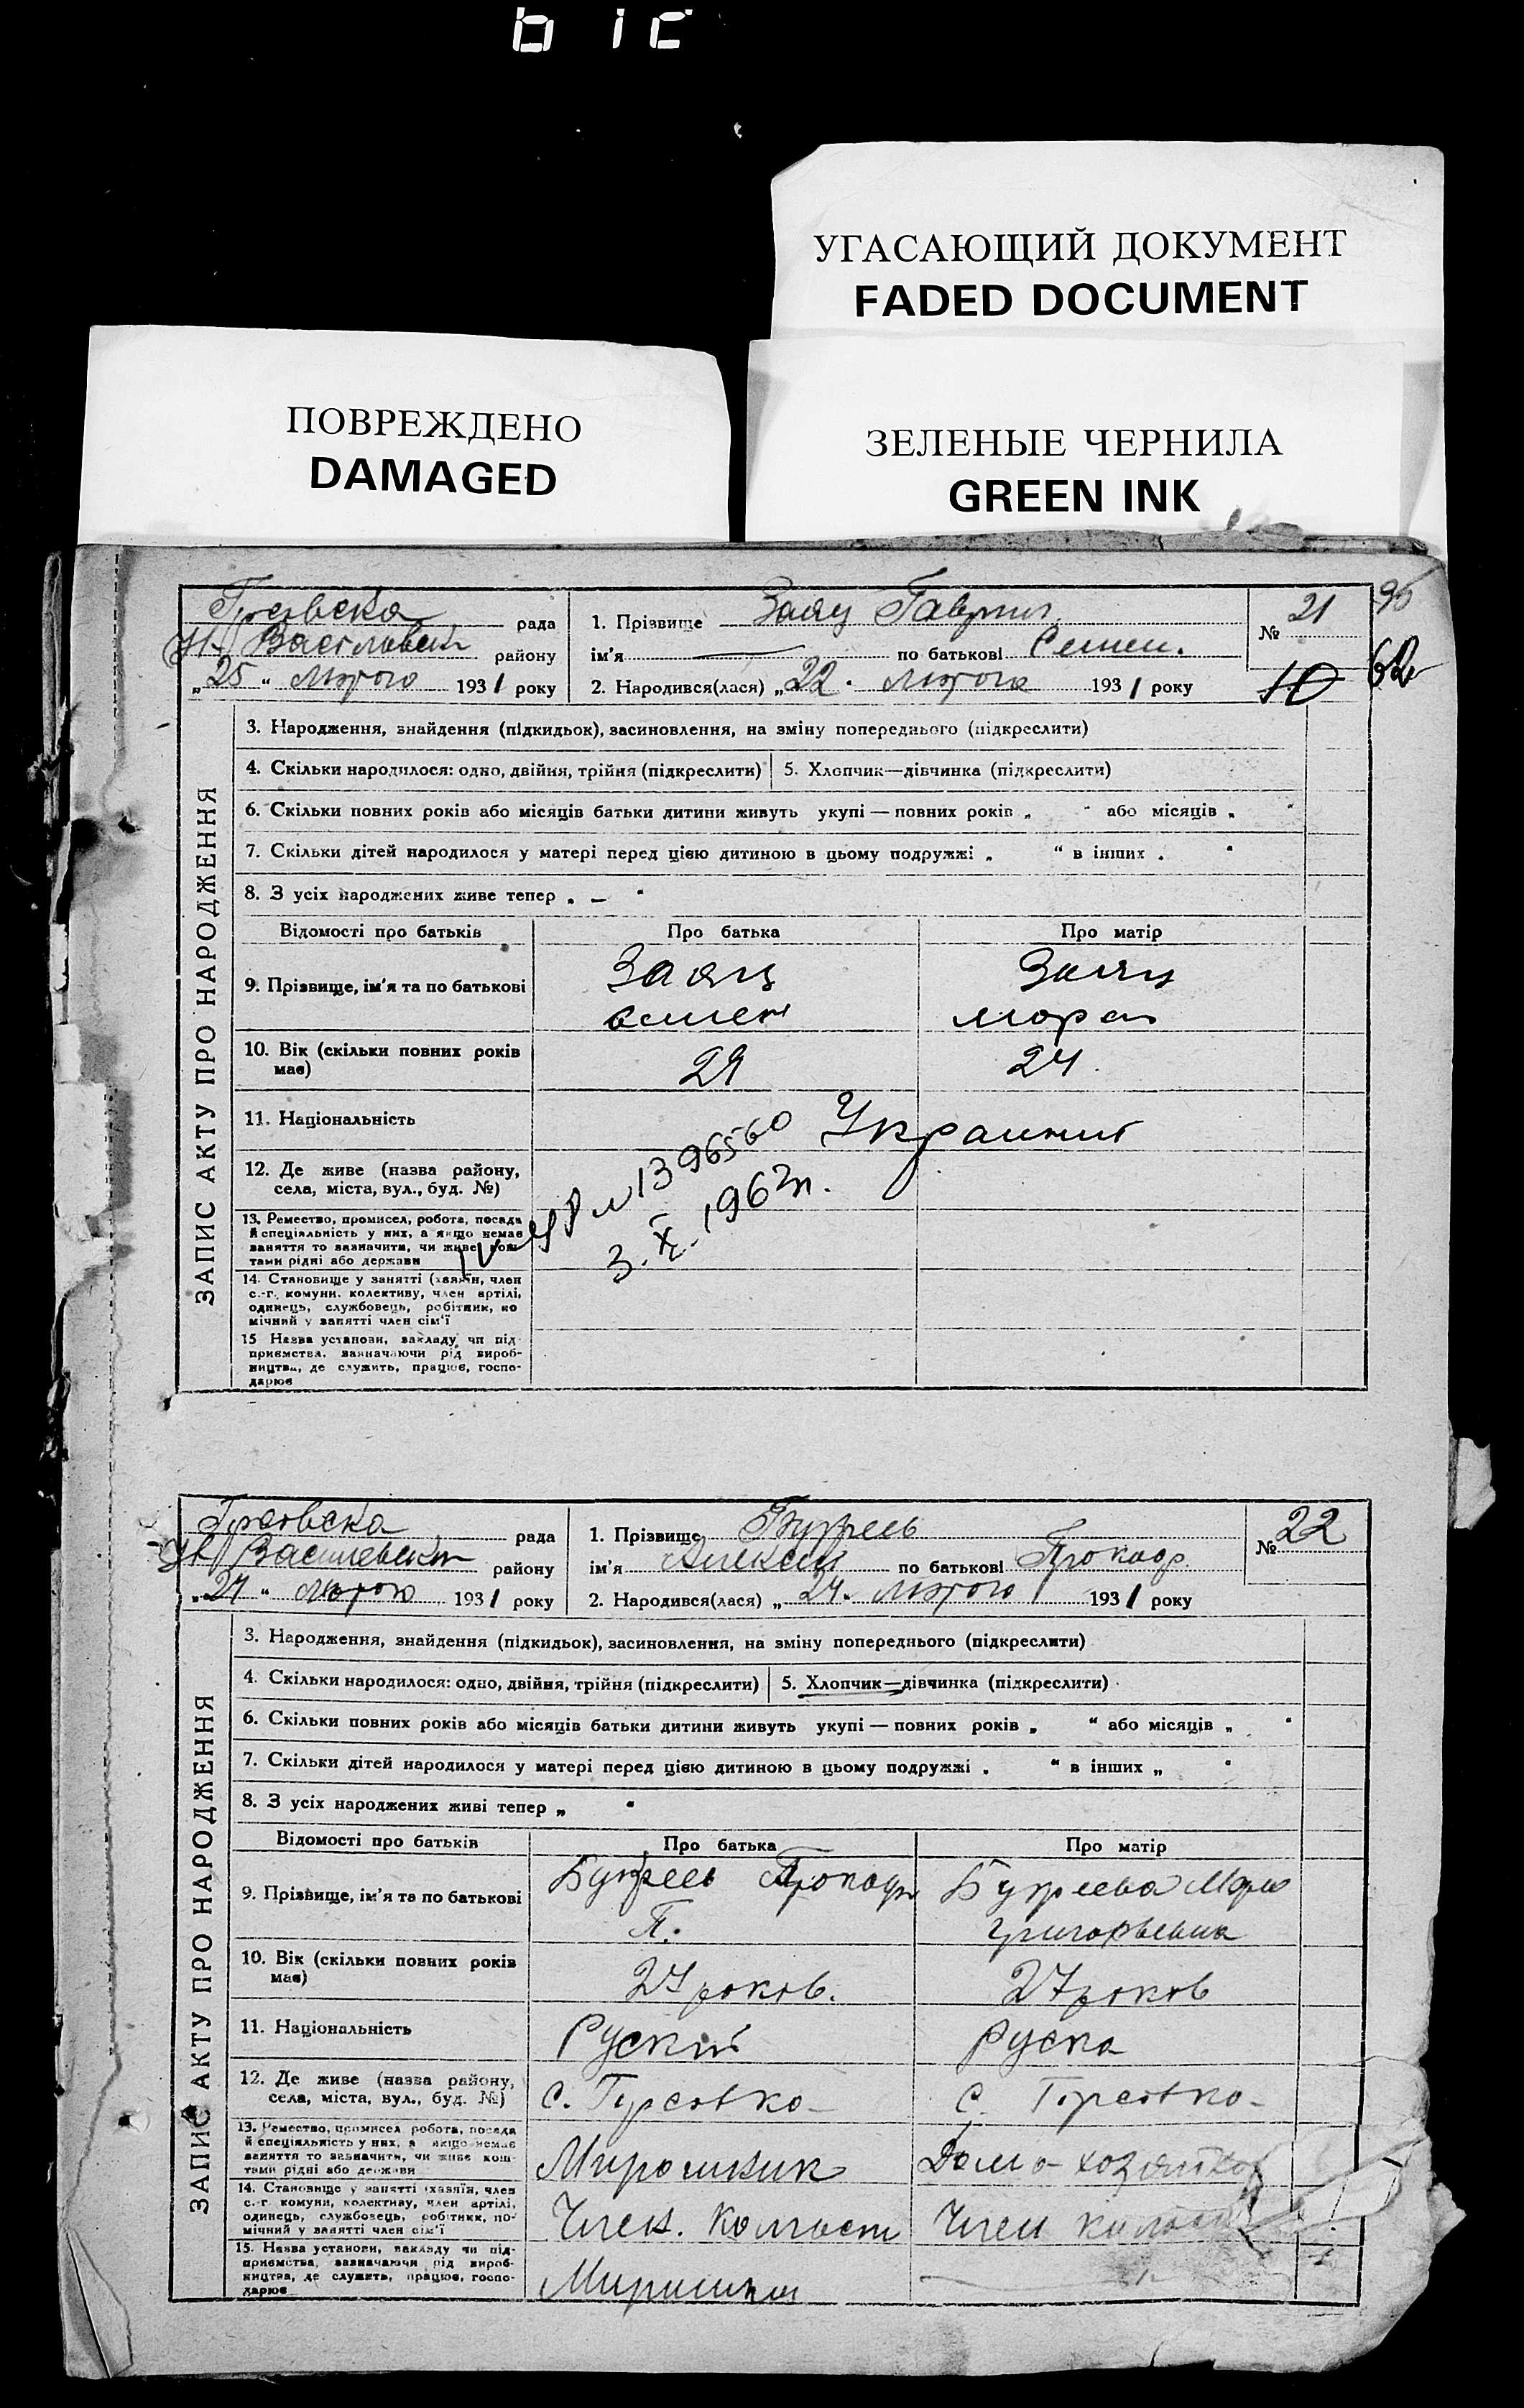 УГАСАЮЩИЙ ДОКУМЕНТ
FADED DOCUMENT
ПОВРЕЖДЕНО
DAMAGED
ЗЕЛЕНЫЕ ЧЕРНИЛА
GREEN INK
рада
району
„25“ Лютого 1931 року
1. Прізвище Заяц Гаврил
ім'я — по батькові Семен.
2. Народився(лася) „22. Лютого 1931 року
№ 21
95
10
62
ЗАПИС АКТУ ПРО НАРОДЖЕННЯ
3. Народження, знайдення (підкидьок), засиновлення, на зміну попереднього (підкреслити)
4. Скільки народилося: одно, двійня, трійня (підкреслити) 5. Хлопчик—дівчинка (підкреслити)
6. Скільки повних років або місяців батьки дитини живуть укупі — повних років „ “ або місяців „ “
7. Скільки дітей народилося у матері перед цією дитиною в цьому подружжі „ “ в інших „ “
8. З усіх народжених живе тепер „ — “
Відомості про батьків Про батька Про матір
9. Прізвище, ім'я та по батькові
Заяц Заяц
семен
10. Вік (скільки повних років має)
29 24.
11. Національність
12. Де живе (назва району, села, міста, вул., буд. №)
1396560
3.X.1962
13. Ремество, промисел, робота, посада й спеціяльність у них, а якщо немає заняття то зазначити, чи живе коштами рідні або держави
14. Становище у занятті (хазяїн, член с.-г. комуни, колективу, член артілі, одинець, службовець, робітник, помічний у занятті член сім'ї
15 Назва установи, закладу чи підприємства, зазначаючи рід виробництва, де служить, працює, господарює
рада
району
„27“ Лютого 1931 року
1. Прізвище Букреев
ім'я Алексей по батькові Прокоф.
2. Народився(лася) „24. Лютого 1931 року
№ 22
ЗАПИС АКТУ ПРО НАРОДЖЕННЯ
3. Народження, знайдення (підкидьок), засиновлення, на зміну попереднього (підкреслити)
4. Скільки народилося: одно, двійня, трійня (підкреслити) 5. Хлопчик—дівчинка (підкреслити)
6. Скільки повних років або місяців батьки дитини живуть укупі — повних років „ “ або місяців „ “
7. Скільки дітей народилося у матері перед цією дитиною в цьому подружжі „ “ в інших „ “
8. З усіх народжених живі тепер „ “
Відомості про батьків Про батька Про матір
9. Прізвище, ім'я та по батькові
Букреев Прокофи Букреева
П. Григорьевна
10. Вік (скільки повних років має)
27 роков. 27 роков
11. Національність
Руский Руска
12. Де живе (назва району, села, міста, вул., буд. №)
13. Ремество, промисел робота, посада й спеціяльність у них, а якщо немає заняття то зазначити, чи живе коштами рідні або держави
Мирошник Домо-хозяйка
14. Становище у занятті (хазяїн, член с.-г комуни, колективу, член артілі, одинець, службовець, робітник, помічний у занятті член сім'ї
Член. Член
15. Назва установи, закладу чи підприємства, зазначаючи рід виробництва, де служить, працює, господарює